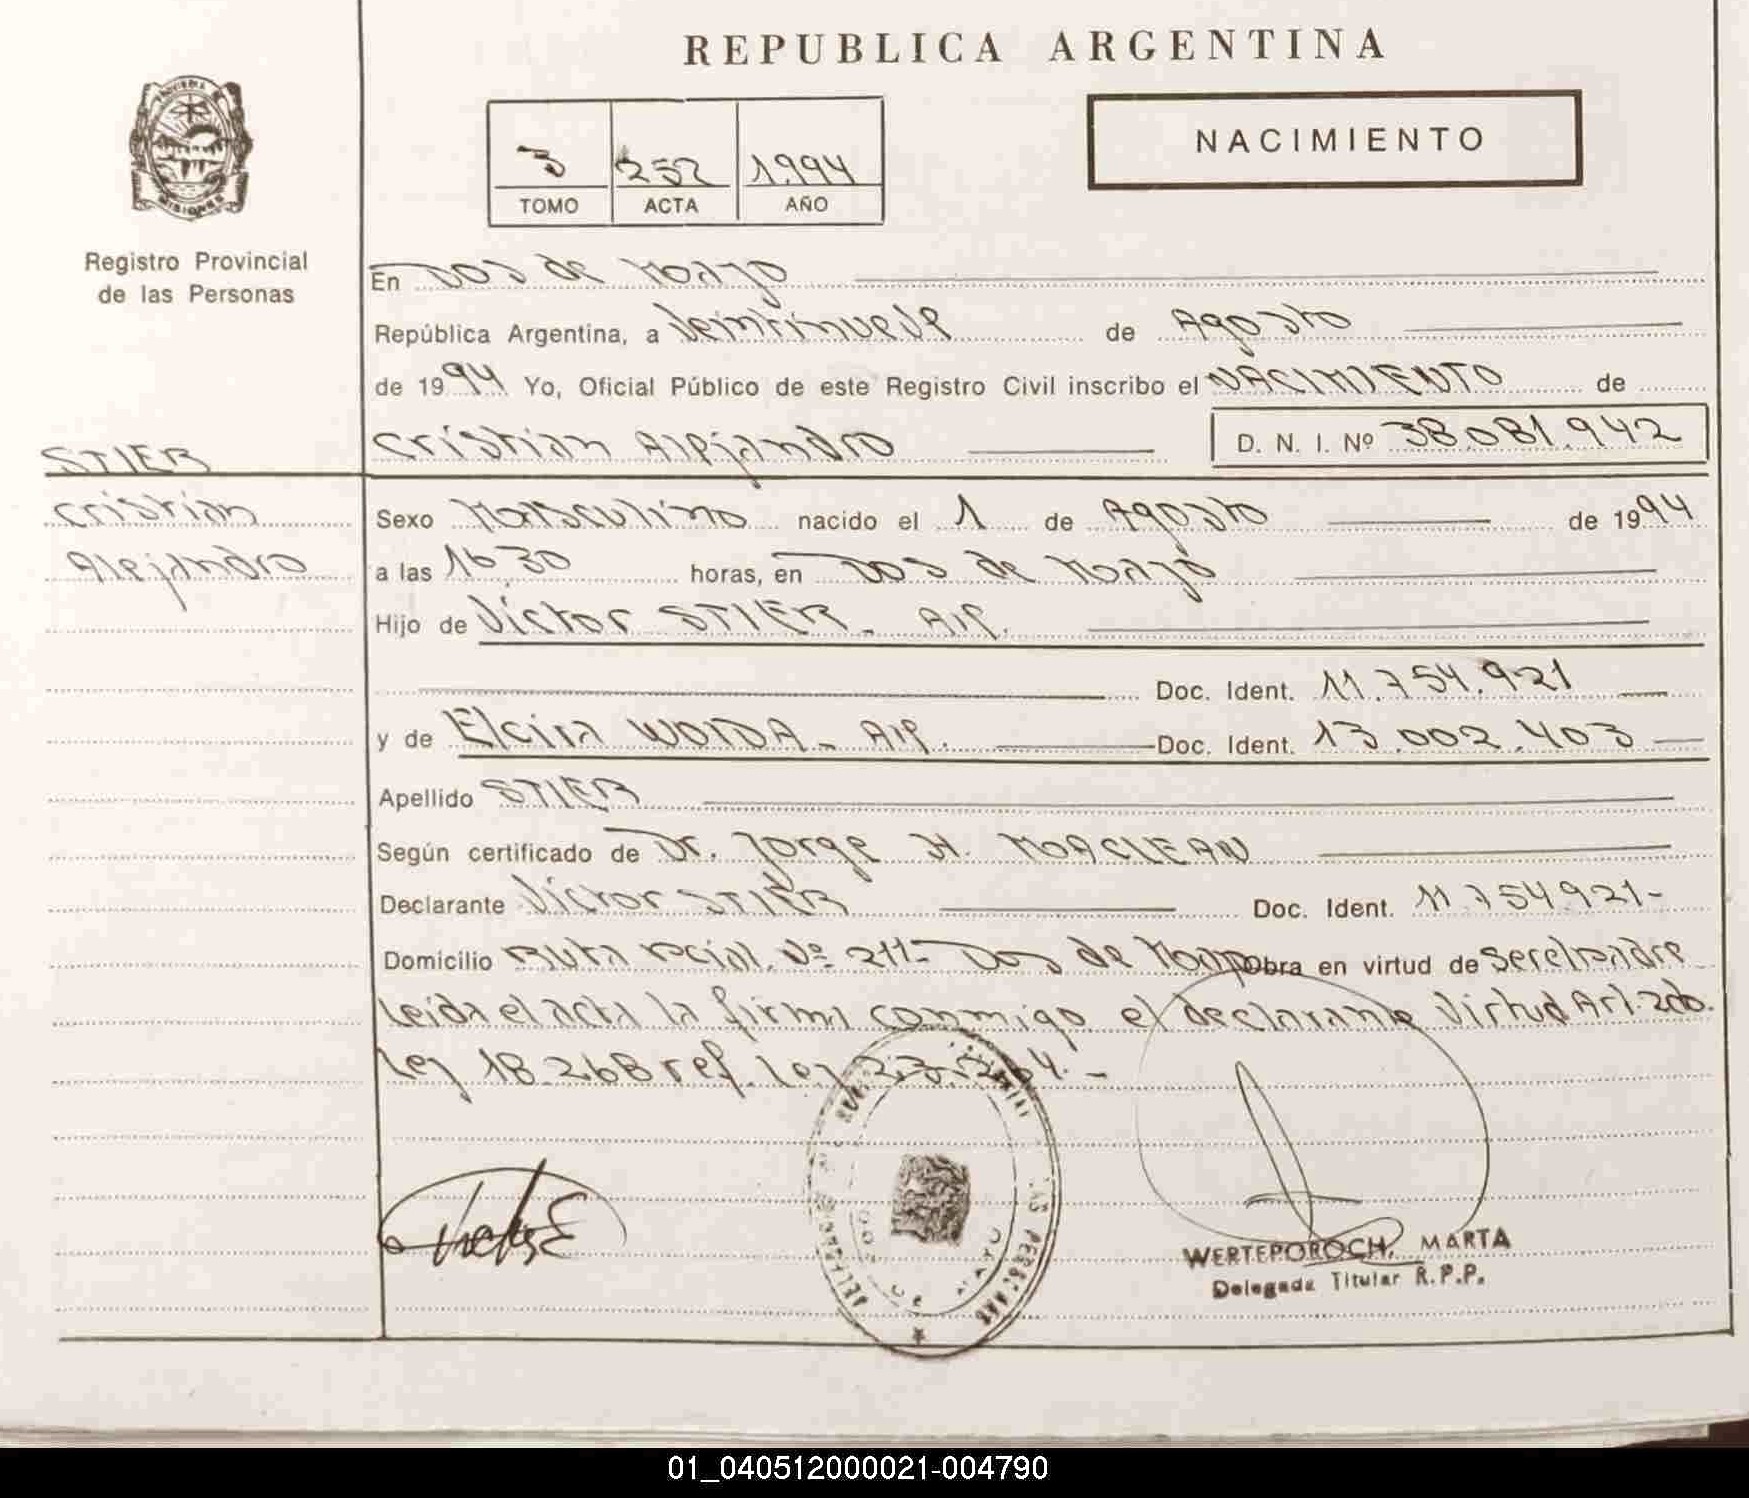 REPUBLICA ARGENTINA
3 252 1.994
TOMO ACTA AÑO
NACIMIENTO
MISIONES
Registro Provincial
de las Personas
En DOS de Mayo
República Argentina, a Veintinueve de Agosto
de 1994 Yo, Oficial Público de este Registro Civil inscribo el NACIMIENTO de
Cristian Alejandro D. N. I. Nº 38.081.942
STIER
Cristian
Alejandro
Sexo Masculino nacido el 1 de Agosto de 1994
a las 16 30 horas, en DOS de Mayo
Hijo de Víctor STIER - Arg.
Doc. Ident. 11.754.921
y de Elcira WOIDA - Arg. Doc. Ident. 13.002.403
Apellido STIER
Según certificado de Dr. Jorge H. MACLEAN
Declarante Víctor STIER Doc. Ident. 11 754 921-
Domicilio Ruta pcial. Nº 211- Dos de Mayo Obra en virtud de ser el padre
Leída el acta la firma conmigo el declarante Virtud Art. 2do.
Ley 18.268 ref. Ley 23.264. -
DOS DE MAYO
WERTEPOROCH, MARTA
Delegada Titular R.P.P.
01_040512000021-004790